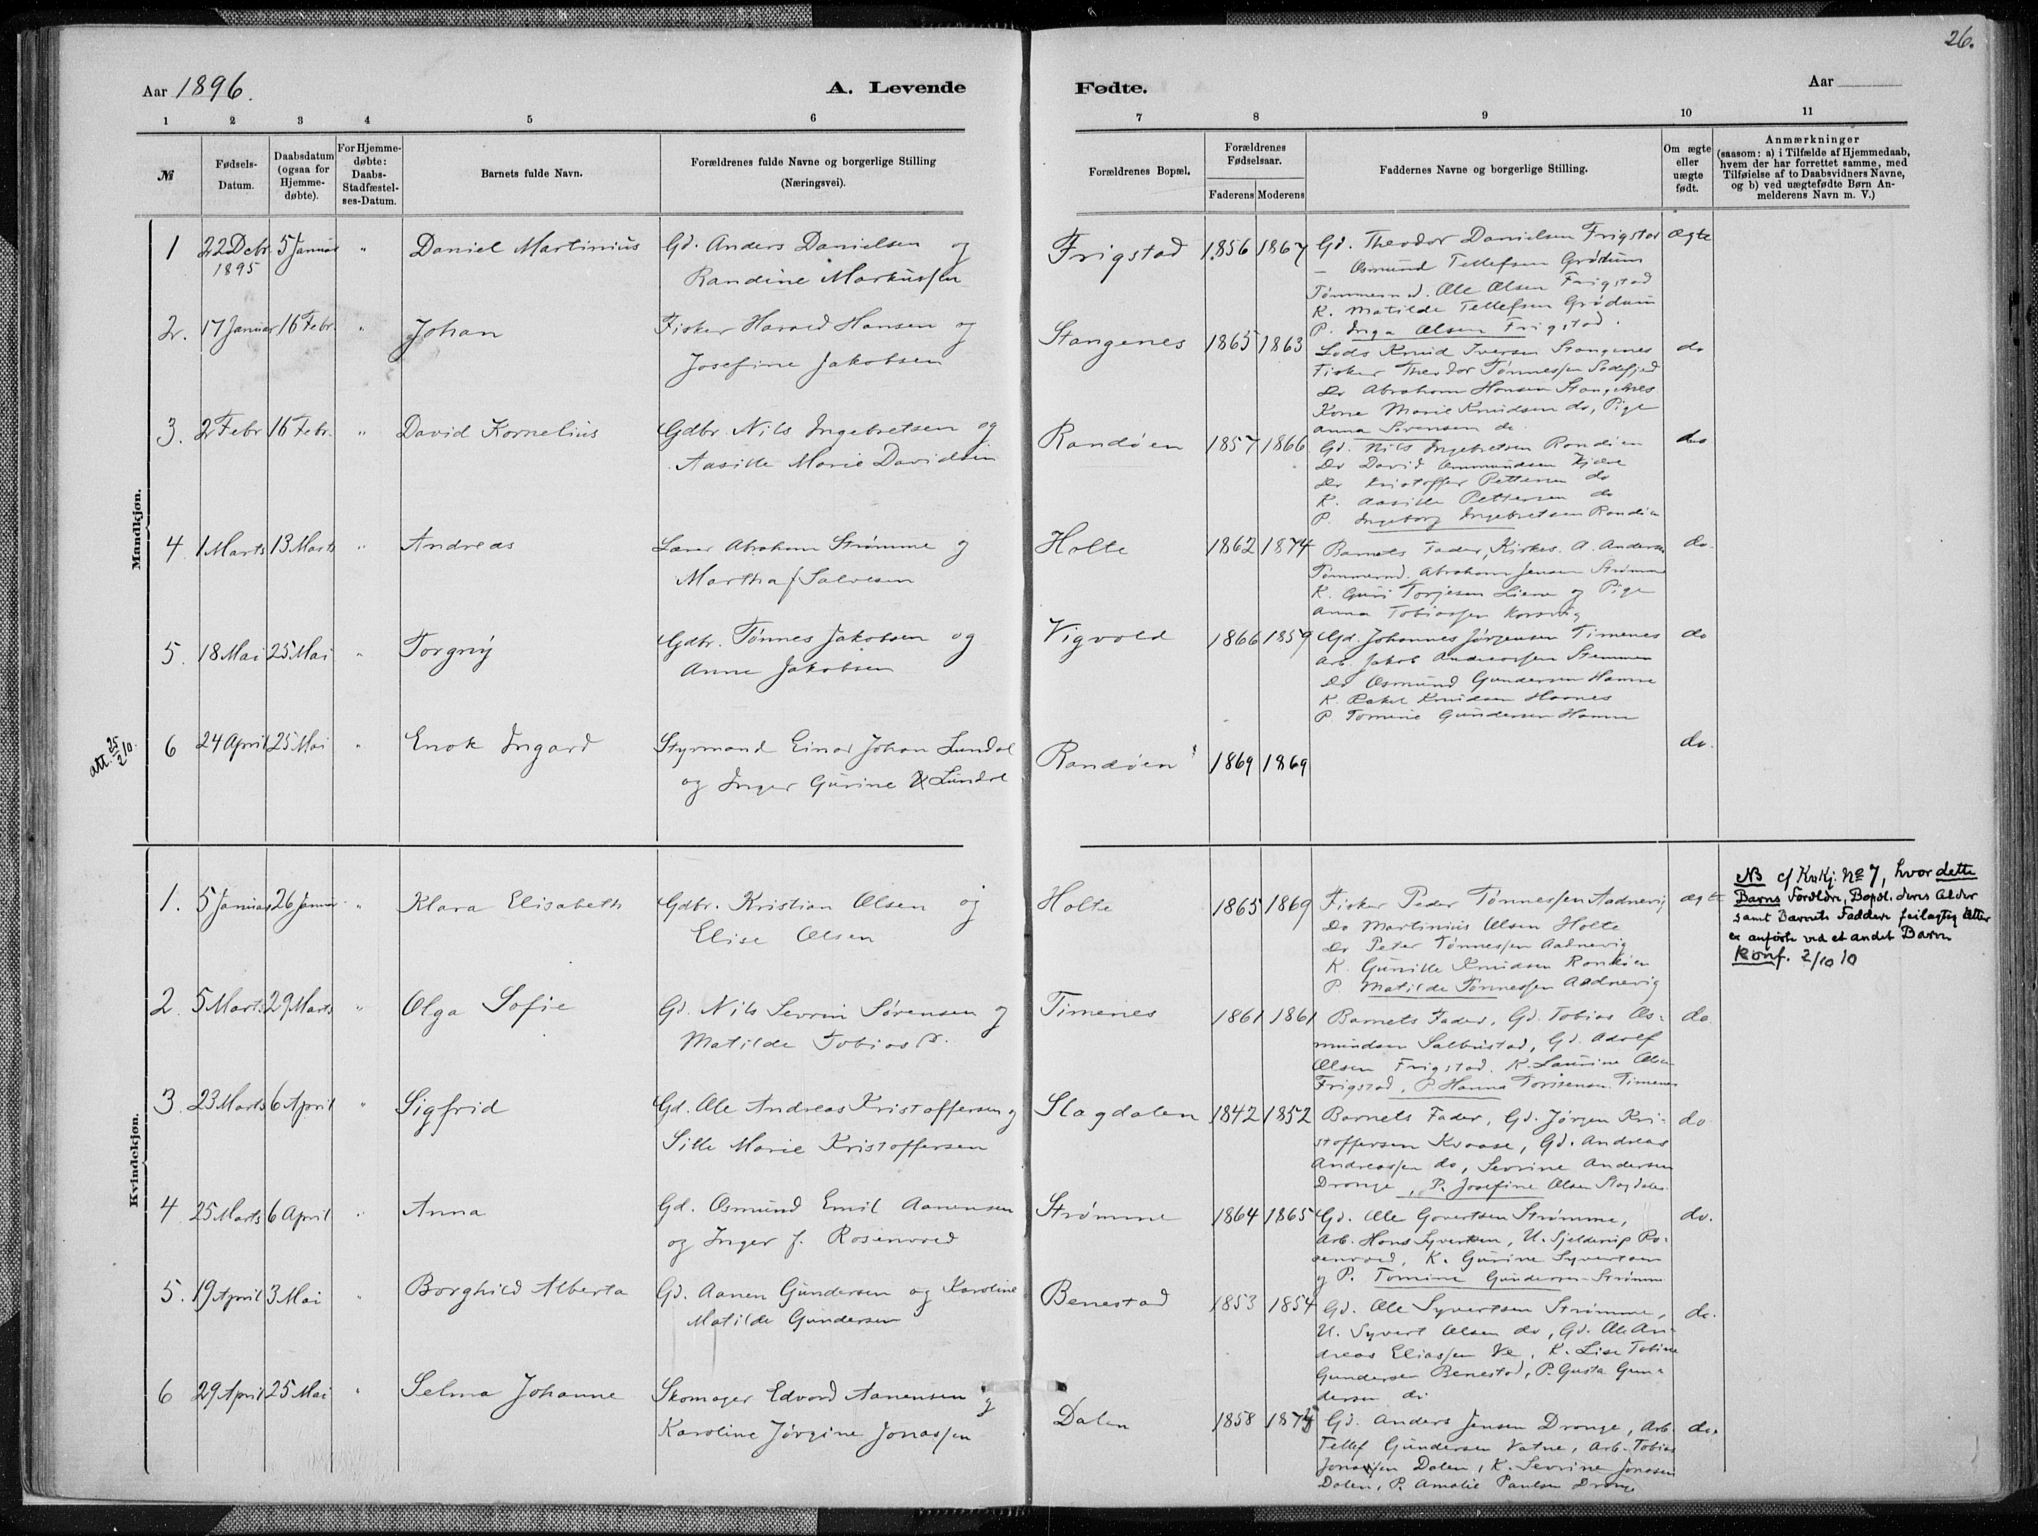 26.
Aar 1896.
A. Levende
Fødte.
Aar
1 2 3 4 5 6 7 8 9 10 11
№
Fødsels-
Datum.
Daabsdatum
(ogsaa for
Hjemme-
døbte).
For Hjemme-
døbte:
Daabs-
Stadfæstel-
ses-Datum.
Barnets fulde Navn.
Forældrenes fulde Navne og borgerlige Stilling
(Næringsvei).
Forældrenes Bopæl.
Forældrenes
Fødselsaar.
Faderens Moderens
Faddernes Navne og borgerlige Stilling.
Om ægte
eller
uægte
født.
Anmærkninger
(saasom: a) i Tilfælde af Hjemmedaab,
hvem der har forrettet samme, med
Tilføielse af to Daabsvidners Navne,
og b) ved uægtefødte Børn An-
melderens Navn m. V.)
Mandkjøn.
1 22 Decbr. 5 Januar " Daniel Martinius Gd. Anders Danielsen og
1895
Randine Markussen
Frigstad 1856 1867 Gd. Theodor Danielsen Frigstad ægte
— Osmund Tellefsen Grødum
Tømmermd. Ole Olsen Frigstad
K. Matilde Tellefsen Grødum
P. Inga Olsen Frigstad.
2. 17 Januar 16 Febr. " Johan Fisker Harald Hansen og
Josefine Jakobsen
Stangenes 1865 1863 Lods Knud Iversen Stangenes do
Fisker Theodor Tønnessen
Do Abraham Hansen Stangenes
Kone Marie Knudsen do, Pige
Anna Sørensen do
3. 2 Febr 16 Febr. " David Kornelius Gdbr. Nils Ingebretsen og
Aasille Marie Davidsen
Randøen 1857 1866 Gd. Nils Ingebretsen Randøen do
Do David Ommundsen Kjære
Do Kristoffer Pettersen do
K. Aasille Pettersen do
P. Ingeborg Ingebretsen Randøen
4. 1 Marts 13 Marts " Andreas Lærer Abraham Strømme og
Martha f. Salvesen
Holte 1862 1874 Barnets Fader, Kirkes. A. Andersen do.
Tømmermd. Abraham Jensen Strømme
K. Guri Torjesen Liene og Pige
Anna Tobiassen Korsvig
5. 18 Mai 25 Mai " Torgny Gdbr. Tønnes Jakobsen og
Anne Jakobsen
Vigvold 1866 1859 Gd. Johannes Jørgensen Timenes do
Arb. Jakob Andreassen Stemmen
Do Osmund Gundersen Hamre
K. Rakel Knudsen Haanes
P. Tomine Gundersen Hamre
att. 25/2 10.
6 24 April 25 Mai " Enok Ingard Styrmand Einar Johan Lundal
og Inger Gurine Lundal
Randøen 1869 1869 do.
Kvindekjøn.
1. 5 Januar 26 Januar " Klara Elisabeth Gdbr. Kristian Olsen og
Elise Olsen
Holte 1865 1869 Fisker Peder Tønnessen Aadnevig ægte
Do Martinius Olsen Holte
Do Peter Tønnessen Aadnevig
K. Gunille Knudsen Randøen
P. Matilde Tønnessen Aadnevig
NB cf Kvkj. № 7, hvor dette
Barns Forældre, Bopæl, deres Alder
samt Barnets Faddere feilagtig atter
er anførte ved et andet Barn
Konf. 2/10 10
2. 5 Marts 29 Marts " Olga Sofie Gd. Nils Sevrin Sørensen og
Matilde Tobias D.
Timenes 1861 1861 Barnets Fader, Gd. Tobias Os-
mundsen Salbustad, Gd. Adolf
Olsen Frigstad. K. Laurine Olsen
Frigstad, P. Hanna Torisensen Timenes
do
3. 23 Marts 6 April " Sigfrid Gd. Ole Andreas Kristoffersen og
Sille Marie Kristoffersen
Slagdalen 1842 1852 Barnets Fader, Gd. Jørgen Kri-
stoffersen Kvaase, Gd. Andreas
Andreassen do, Sevrine Andersen
Drange, P. Josefine Olsen Slagdalen
do
4 25 Marts 6 April " Anna Gd. Osmund Emil Aanensen
og Inger f. Rosenvold
Strømme 1864 1865 Gd. Ole Govertsen Strømme,
Arb. Hans Syvertsen, U. Hjelderup Ro-
senvold, K. Gurine Syvertsen
og P. Tomine Gundersen Strømme
do.
5. 19 April 3 Mai " Borghild Alberta Gd. Aanen Gundersen og Karoline
Matilde Gundersen
Benestad 1853 1854 Gd. Ole Syvertsen Strømme,
U. Syvert Olsen do, Gd. Ole An-
dreas Eliassen Ve, K. Lise Tobine
Gundersen Benestad, P. Gusta Gun-
dersen do
do.
6 29 April 25 Mai " Selma Johanne Skomager Edvard Aanensen og
Karoline Jørgine Jonassen
Dalen 1858 1874 Gd. Anders Jensen Drange, Arb.
Tellef Gundersen Vatne, Arb. Tobias
Jonassen Dalen, K. Sevrine Jonassen
Dalen, P. Amalie Paulsen Drange
do.